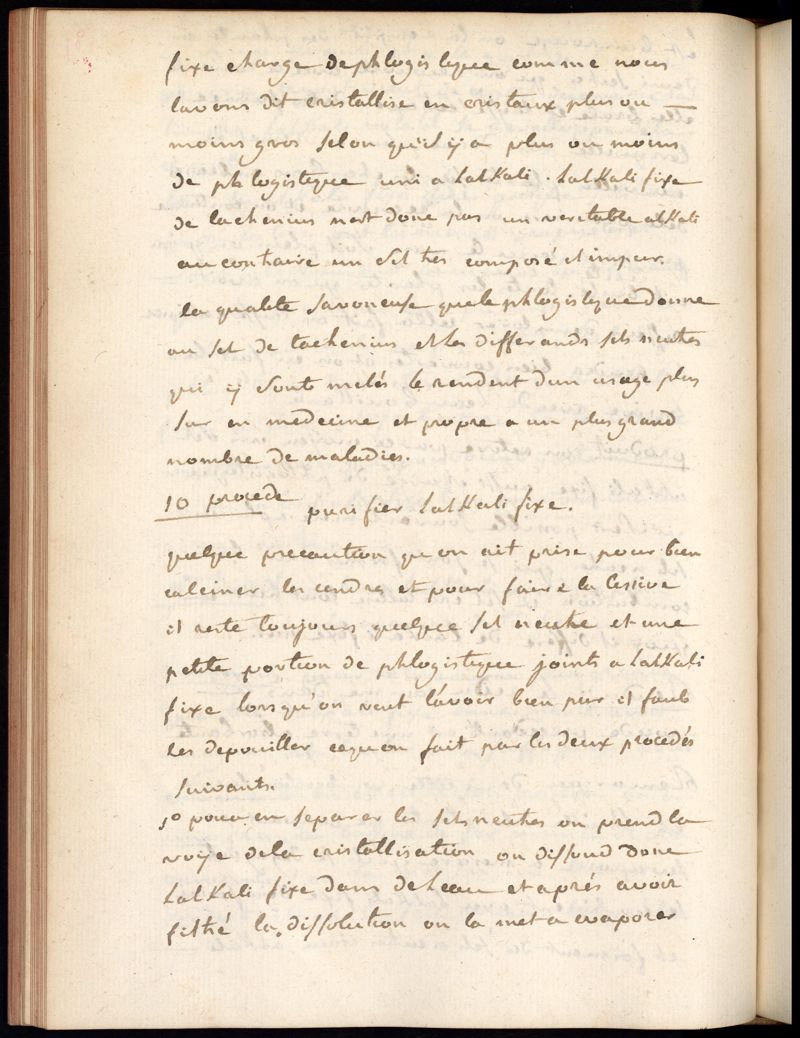 fixe charge de phlogistique comme nous
lavons dit cristallise en cristaux plus ou —
moins gros selon qu'il y a plus ou moins
de phlogistique uni a lalkali . lalkali fixe
de tachenius nest donc pas un veritable alkali
au contraire un sel tres composé et impur.
la qualite savoneuse que le phlogistique donne
au sel de tachenius et les differands sels neutres
qui y sont melés le rendent dun usage plus
sur en medecine et propre a un plus grand
nombre de maladies.
10 procede purifier lalkali fixe.
quelque precaution qu on ait prise pour bien
calciner les cendres et pour faire la lessive
il reste toujours quelque sel neutre et une
petite portion de phlogistique joints a lalkali
fixe lorsqu'on veut l'avoir bien pur il faut
les depouiller cequ on fait par les deux procedés
suivants.
1o pour en separer les sels neutres on prend la
voye de la cristallisation on dissoud donc
lalkali fixe dans de leau et aprés avoir
filtré la dissolution on la met a evaporer